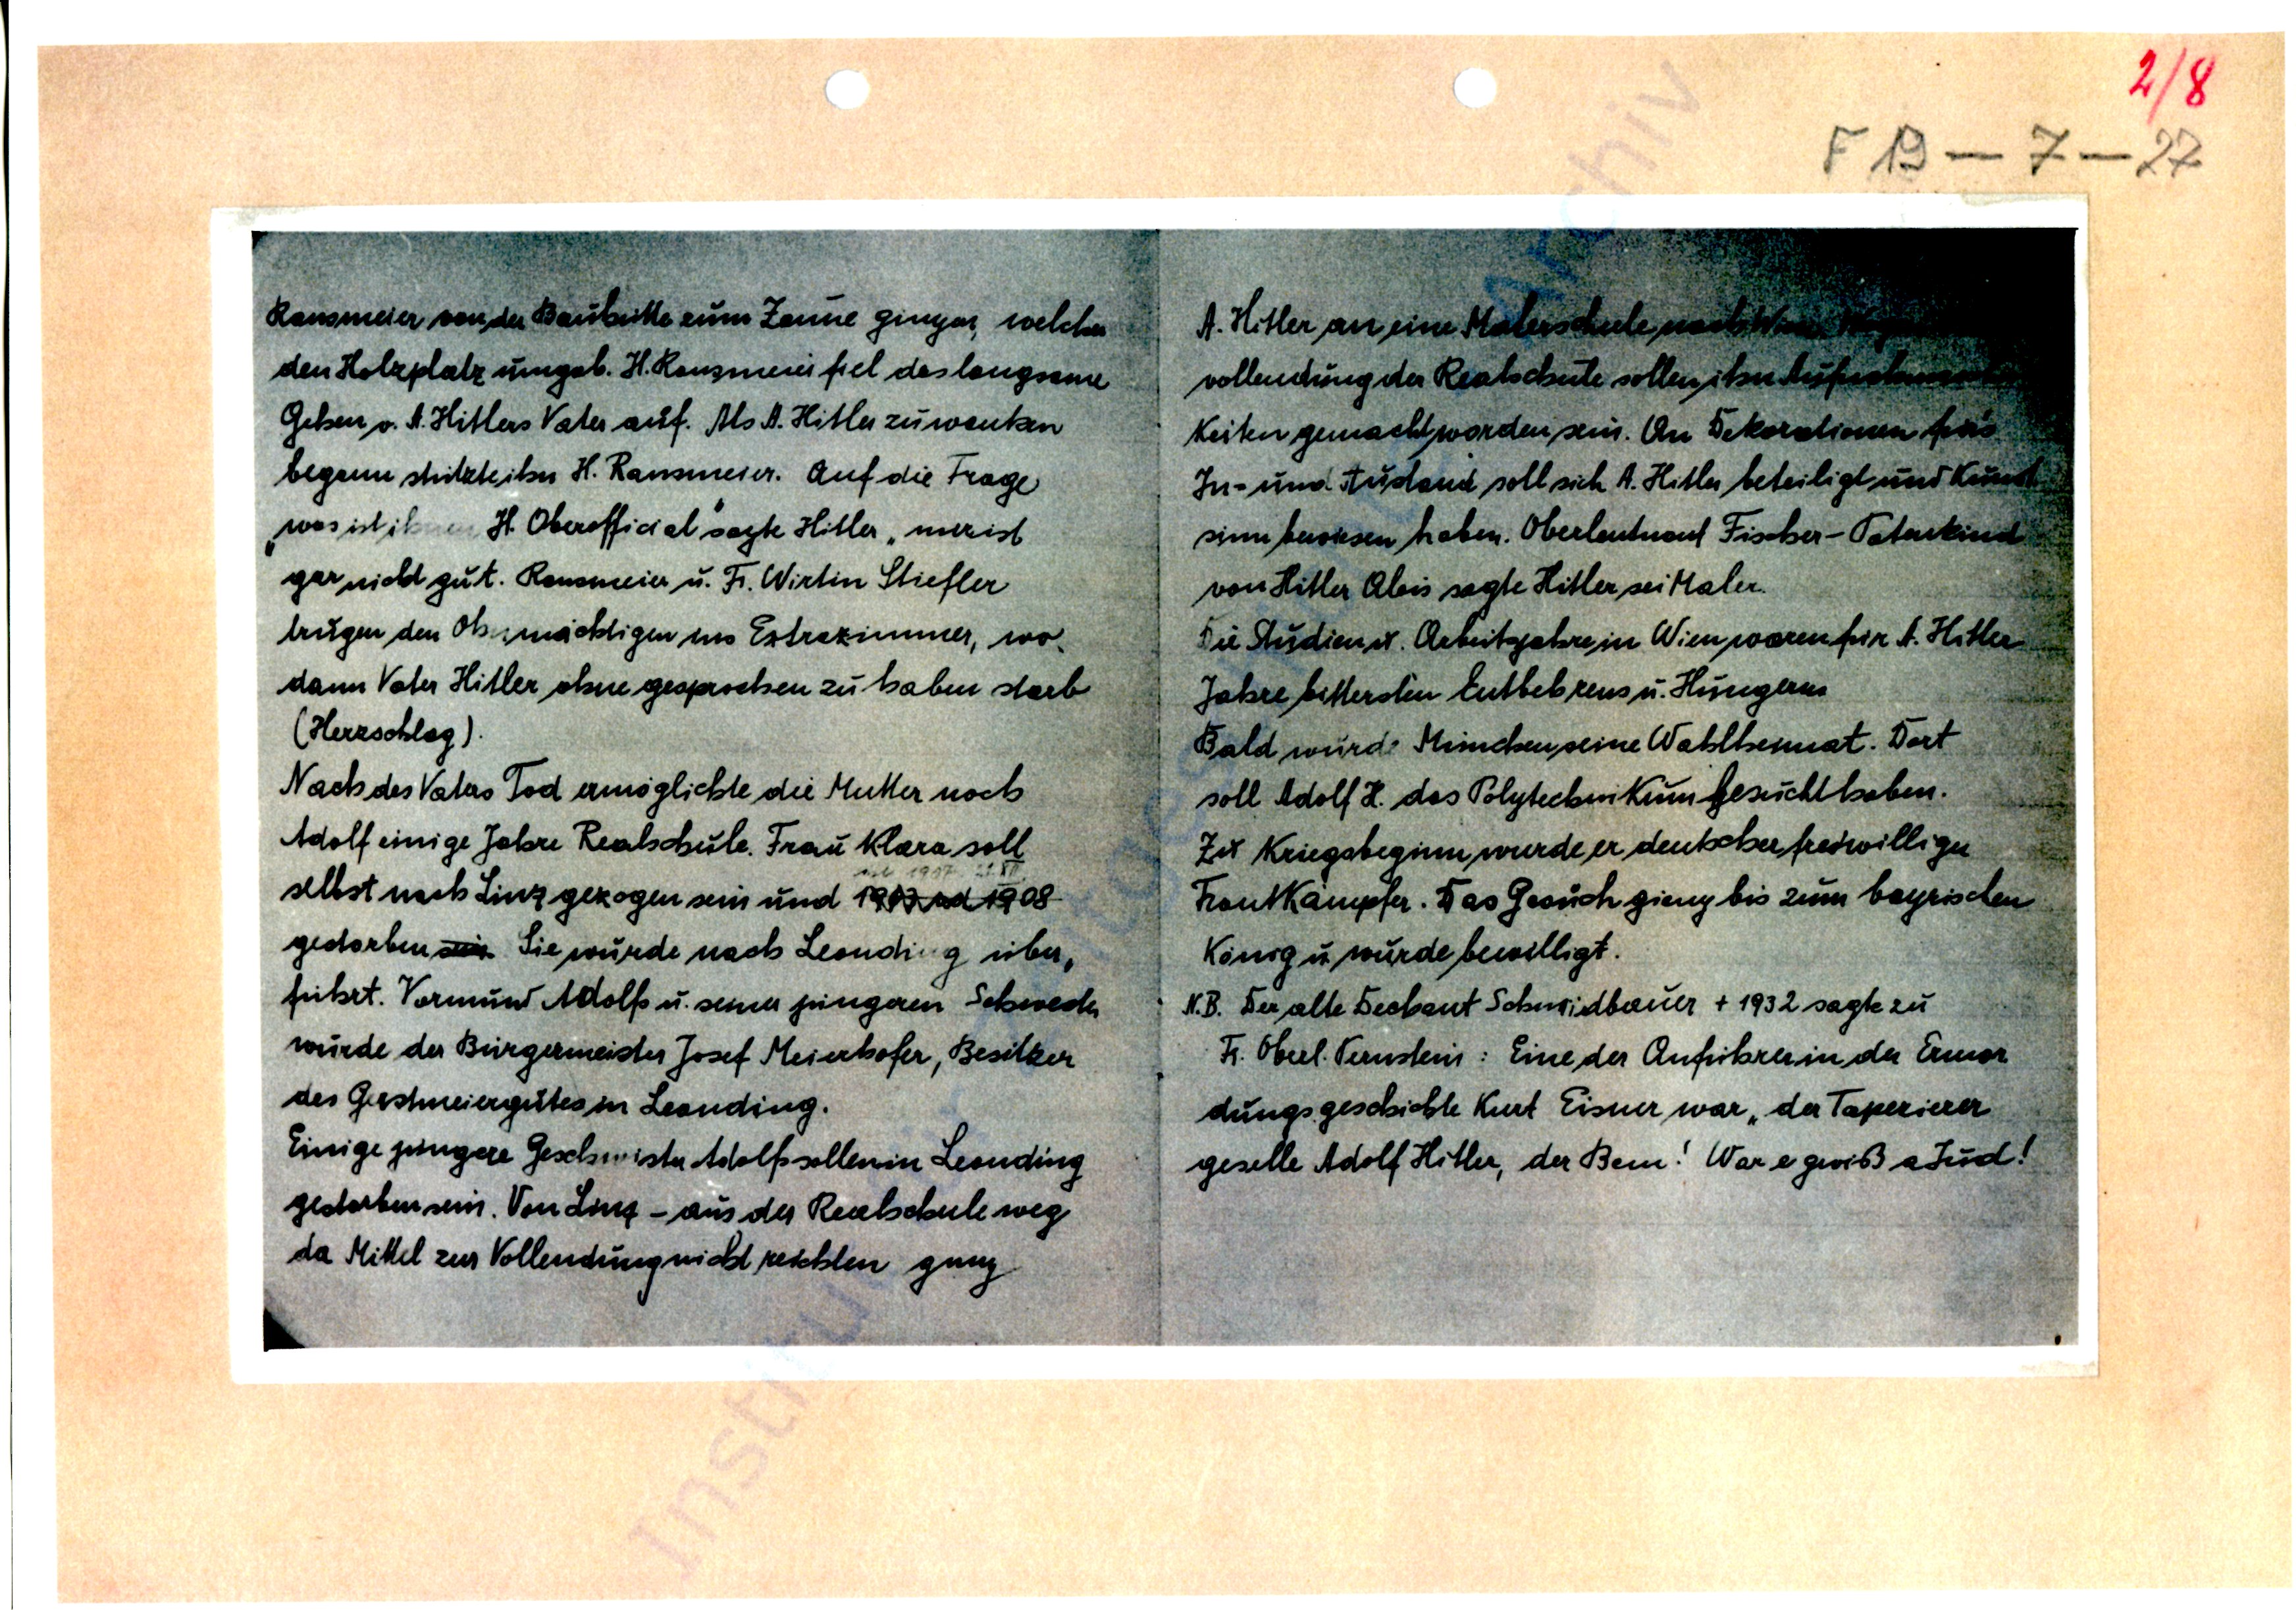 2/8
F 19 — 7 — 27
Ransmeier von der Bauhütte zum Zaune gingen, welcher
den Holzplatz umgab. H. Ransmeier fiel das langsame
Gehen v. A. Hitlers Vater auf. Als A. Hitler zu wanken
begann stützte ihn H. Ransmeier. Auf die Frage
„was ist ihnen H. Oberofficial" sagte Hitler „mir ist
gar nicht gut. Ransmeier u. Fr. Wirtin Stiefler
trugen den Ohnmächtigen ins Extrazimmer, wo
dann Vater Hitler ohne gesprochen zu haben starb
(Herzschlag).
Nach des Vaters Tod ermöglichte die Mutter noch
Adolf einige Jahre Realschule. Frau Klara soll
1907 21. XII
selbst nach Linz gezogen sein und 1907 od 1908
gestorben sein. Sie wurde nach Leonding über„
führt. Vormund Adolfs u. seiner jüngeren Schwester
wurde der Bürgermeister Josef Meierhofer, Besitzer
des Gastmeiergutes in Leonding.
Einige jüngere Geschwister Adolfs sollen in Leonding
gestorben sein. Von Linz – aus der Realschule weg
da Mittel zur Vollendung nicht reichten ging
A. Hitler an eine Malerschule nach Wien. Wegen
vollendung der Realschule sollen ihm
keiten gemacht worden sein. An Dekorationen fürs
In- und Ausland soll sich A. Hitler beteiligt und Kunst
sinn bewiesen haben. Oberleutnant Fischer – Patenkind
von Hitler Alois sagte Hitler sei Maler.
Die Studien u. Arbeitsjahre in Wien waren für A. Hitler
Jahre bittersten Entbehrens u. Hungerns
Bald wurde München seine Wahlheimat. Dort
soll Adolf H. das Polytechnikum besucht haben.
Zu Kriegsbeginn wurde er deutscher freiwilliger
Frontkämpfer. Das Gesuch gieng bis zum bayrischen
König u. wurde bewilligt.
N.B. Der alte Dechant Schmidbauer + 1932 sagte zu
Fr. Oberl. Pernstein: Eine der Anführer in der Ermor
dungsgeschichte Kurt Eisner war „der Tapezierer
geselle Adolf Hitler, der Bem! War e gwiß a Jud!